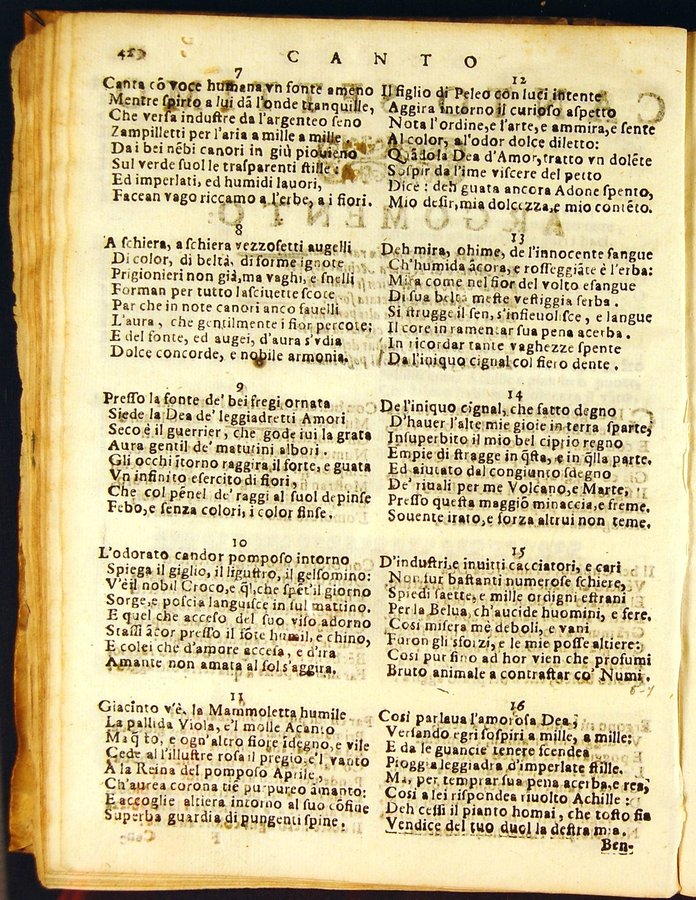 CANTO
7
Canta cō voce humana vn fonte ameno
Mentre spirto a lui dà l'onde tranquille,
Che versa industre da l'argenteo seno
Zampilletti per l'aria a mille a mille
Da i bei nēbi canori in giù piouieno
Sul verde suol le trasparenti stille
Ed imperlati, ed humidi lauori,
Facean vago riccamo a l'erbe, a i fiori.
8
A schiera, a schiera vezzosetti augelli
Di color, di beltà, di forme ignote
Prigionieri non già, ma vaghi, e snelli
Forman per tutto lasciuette scote
Par che in note canori anco fauelli
L'aura, che gentilmente i fior percote;
E del fonte, ed augei, d'aura s'vdia
Dolce concorde, e nobile armonia.
9
Presso la fonte de' bei fregi ornata
Siede la Dea de' leggiadretti Amori
Seco è il guerrier, che gode iui la grata
Aura gentil de' matutini albori.
Gli occhi ītorno raggira il forte, e guata
Vn infinito esercito di fiori,
Che col pēnel de' raggi al suol depinse
Febo, e senza colori, i color finse.
10
L'odorato candor pomposo intorno
Spiega il giglio, il ligustro, il gelsomino:
V'è il nobil Croco, e q̄l, che spēt'il giorno
Sorge, e poscia languisce in sul mattino.
E quel che acceso del suo viso adorno
Stassi ācor presso il fōte humil, e chino,
E colei che d'amore accesa, e d'ira
Amante non amata al sol s'aggira.
11
Giacinto v'è, la Mammoletta humile
La pallida Viola, e'l molle Acanto
Ma q̄to, e ogn'altro fiore idegno, e vile
Cede al l'illustre rosa il pregio, e'l vanto
A la Reina del pomposo Aprile,
Ch'aurea corona tiè pu-pureo amanto:
E accoglie altiera intorno al suo cōfine
Superba guardia di pungenti spine.
12
Il figlio di Peleo con luci intente
Aggira intorno il curioso aspetto
Nota l'ordine, e l'arte, e ammira, e sente
Al color, al l'odor dolce diletto:
Quādo la Dea d'Amor, tratto vn dolēte
Sospir da l'ime viscere del petto
Dice: deh guata ancora Adone spento,
Mio desir, mia dolcezza, e mio contēto.
13
Deh mira, ohime, de l'innocente sangue
Ch'humida àcora, e rosseggiāte è l'erba:
Mira come nel fior del volto esangue
Di sua beltà meste vestiggia serba.
Si strugge il sen, s'infieuolisce, e langue
Il core in ramentar sua pena acerba.
In ricordar tante vaghezze spente
Da l'iniquo cignal col fiero dente.
14
De l'iniquo cignal, che fatto degno
D'hauer l'alte mie gioie in terra sparte,
Insuperbito il mio bel ciprio regno
Empie di stragge in q̄sta, e in q̄lla parte.
Ed aiutato dal congiunto sdegno
De' riuali per me Volcano, e Marte,
Presso questa maggiō minaccia, e freme.
Souente irato, e forza altrui non teme.
15
D'industri, e inuitti cacciatori, e cari
Non fur bastanti numerose schiere,
Spiedi saette, e mille ordigni estrani
Per la Belua, ch'aucide huomini, e fere.
Così misera mè deboli, e vani
Furon gli sforzi, e le mie posse altiere:
Così pur fino ad hor vien che profumi
Bruto animale a contrastar co' Numi.
16
Così parlaua l'amorosa Dea,
Versando ogni sospiri a mille, a mille:
E da le guancie tenere scendea
Pioggia leggiadra d'imperlate stille.
Ma, per temprar sua pena acerba, e rea,
Così a lei rispondea riuolto Achille:
Deh cessi il pianto homai, che tosto fia
Vendice del tuo duol la destra mia.
Ben-